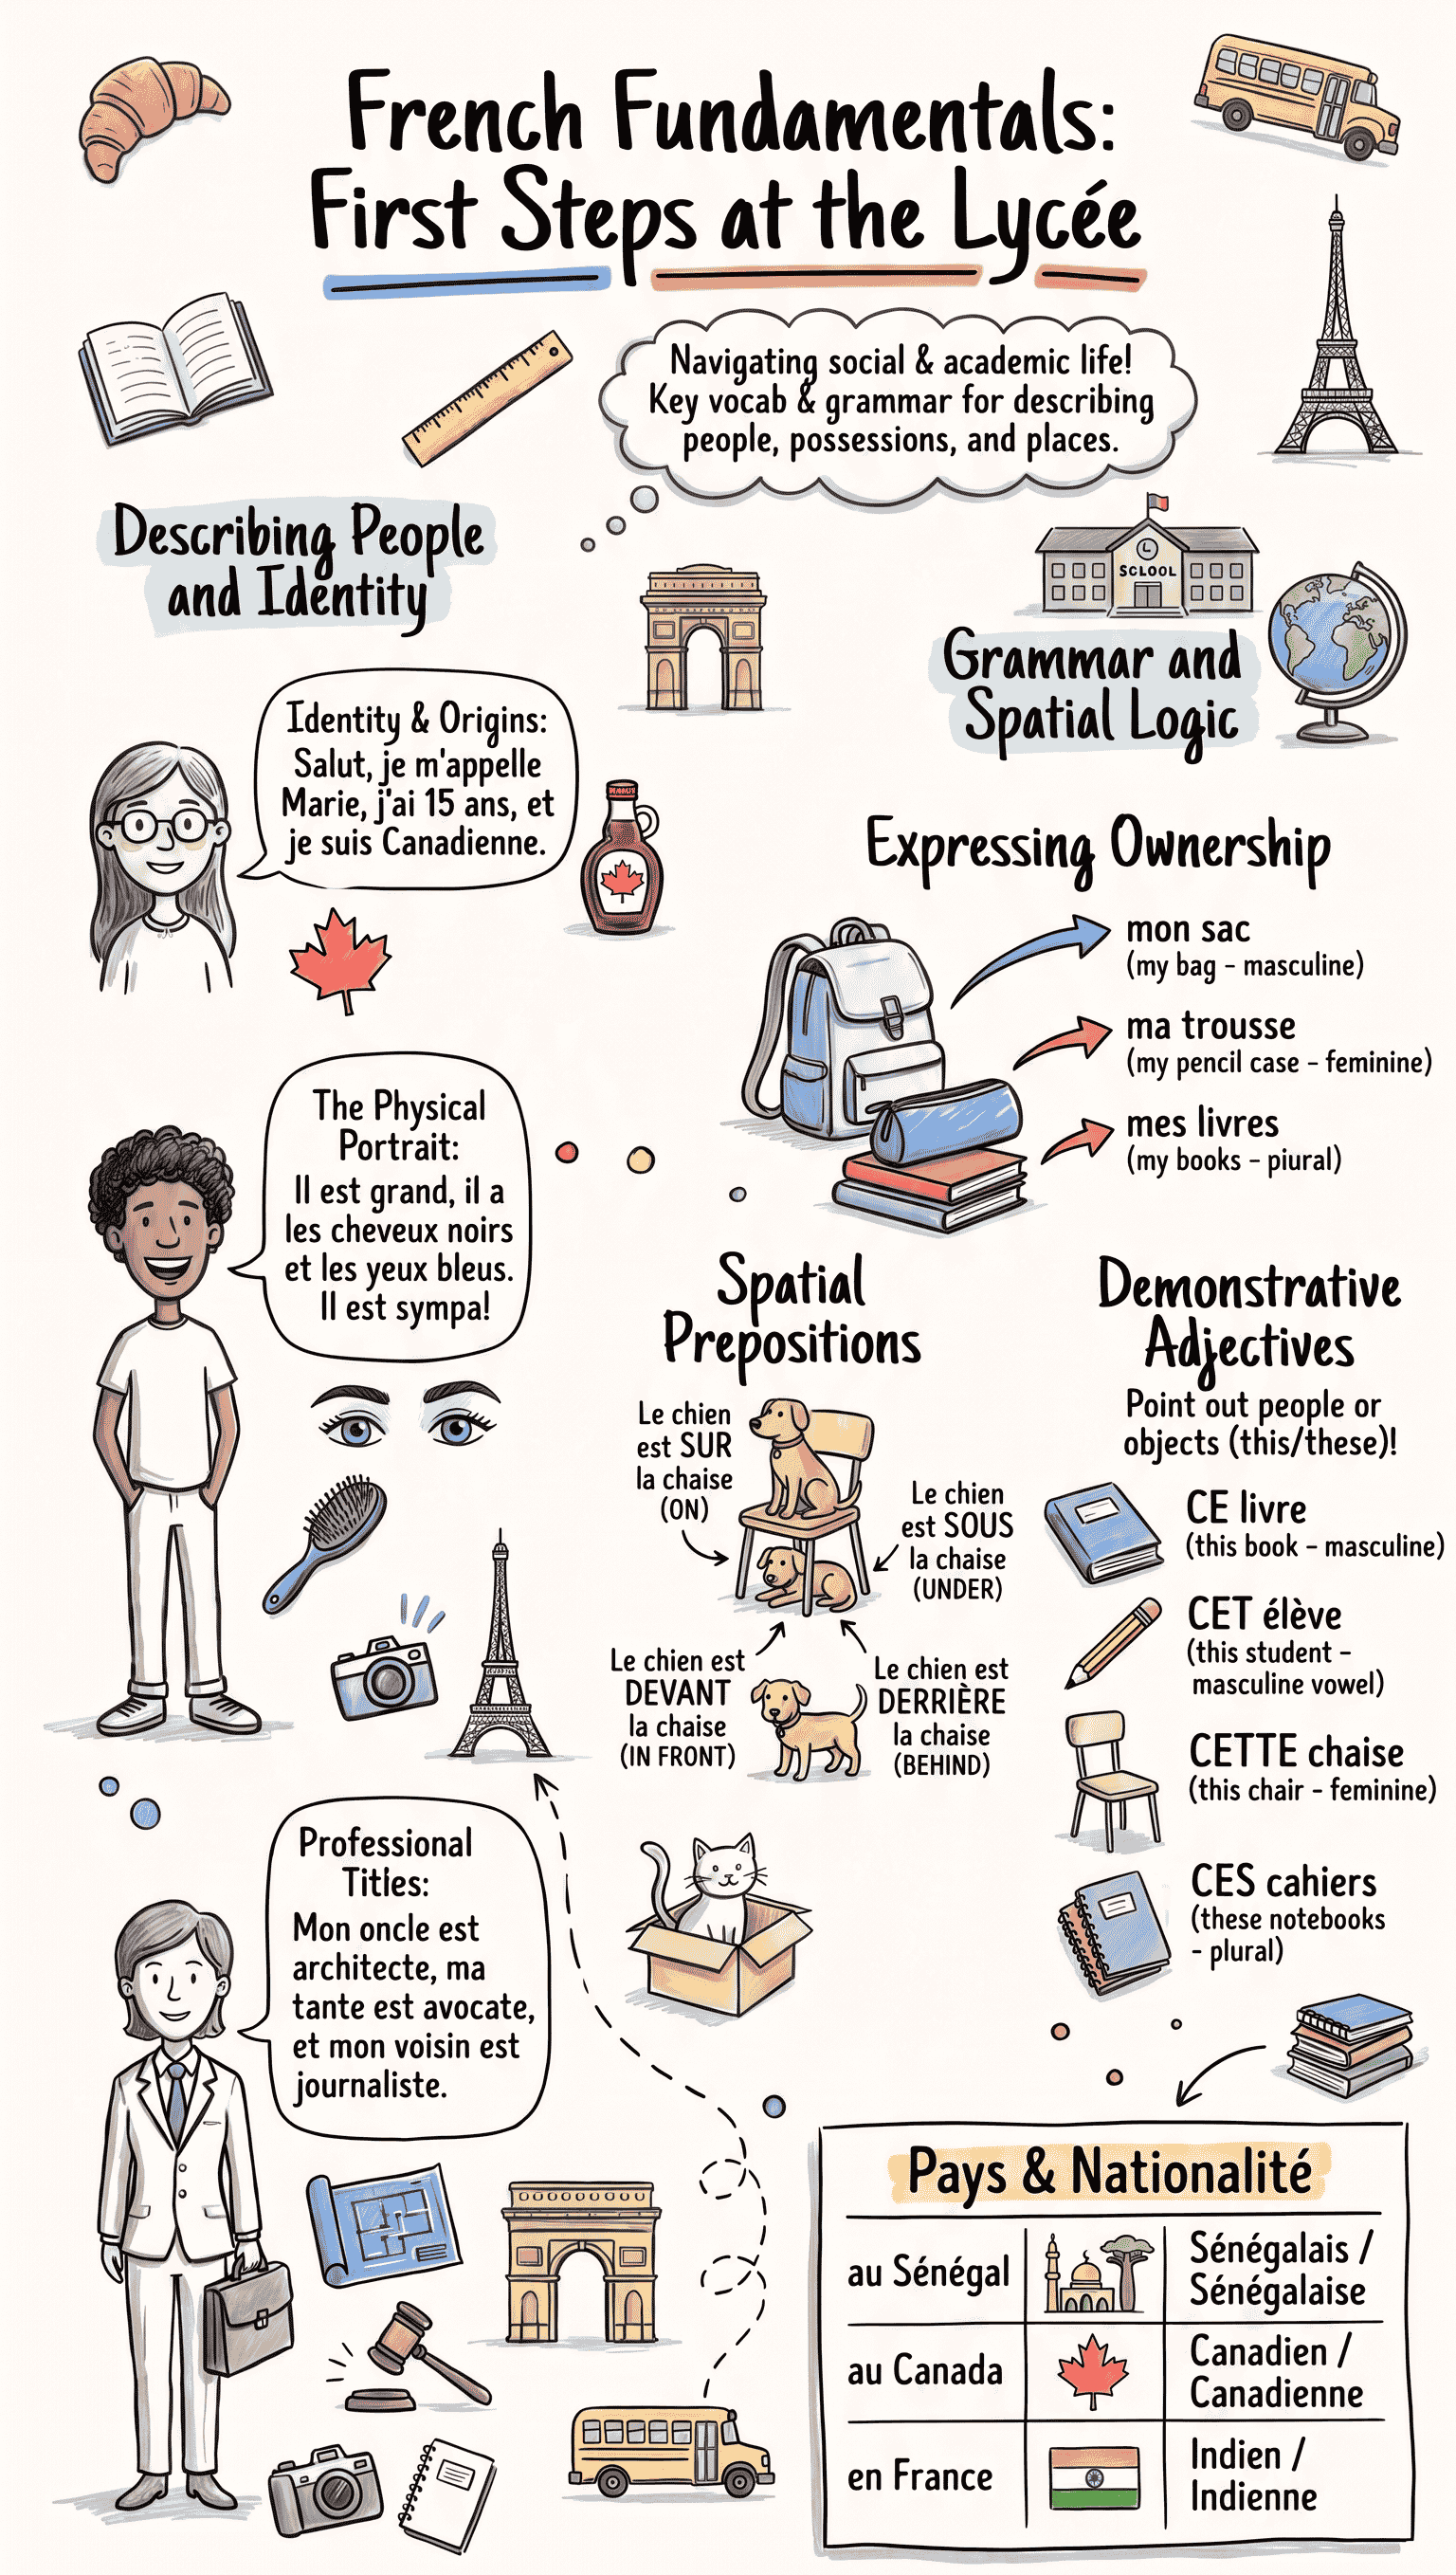 French Fundamentals:
First Steps at the Lycée
Navigating social & academic life!
Key vocab & grammar for describing
people, possessions, and places.
Describing People
and Identity
Identity & Origins:
Salut, je m'appelle
Marie, j'ai 15 ans, et
je suis Canadienne.
The Physical
Portrait:
Il est grand, il a
les cheveux noirs
et les yeux bleus.
Il est sympa!
Professional
Titles:
Mon oncle est
architecte, ma
tante est avocate,
et mon voisin est
journaliste.
SCLOOL
Grammar and
Spatial Logic
Expressing Ownership
mon sac
(my bag - masculine)
ma trousse
(my pencil case - feminine)
mes livres
(my books - piural)
Spatial
Prepositions
Le chien
est SUR
la chaise
(ON)
Le chien
est SOUS
la chaise
(UNDER)
Le chien est
DEVANT
la chaise
(IN FRONT)
Le chien est
DERRIÈRE
la chaise
(BEHIND)
Demonstrative
Adjectives
Point out people or
objects (this/these)!
CE livre
(this book - masculine)
CET élève
(this student -
masculine vowel)
CETTE chaise
(this chair - feminine)
CES cahiers
(these notebooks
- plural)
Pays & Nationalité
au Sénégal
Sénégalais /
Sénégalaise
au Canada
Canadien /
Canadienne
en France
Indien /
Indienne